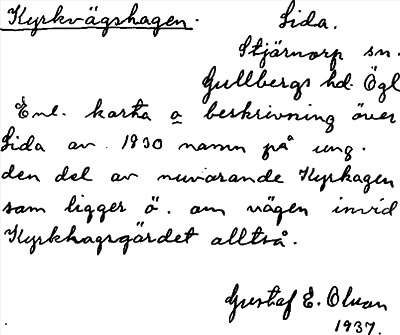 Kyrkvägshagen. Lida.
Stjärnorp sn.
Gullbergs hd. Ögl
Enl. karta o beskrivning över
Lida av 1830 namn på ung.
den del av nuvarande Kyrkagen
som ligger ö. om vägen invid
Kyrkhagsgärdet alltså.
Gustaf E. Olson
1937.